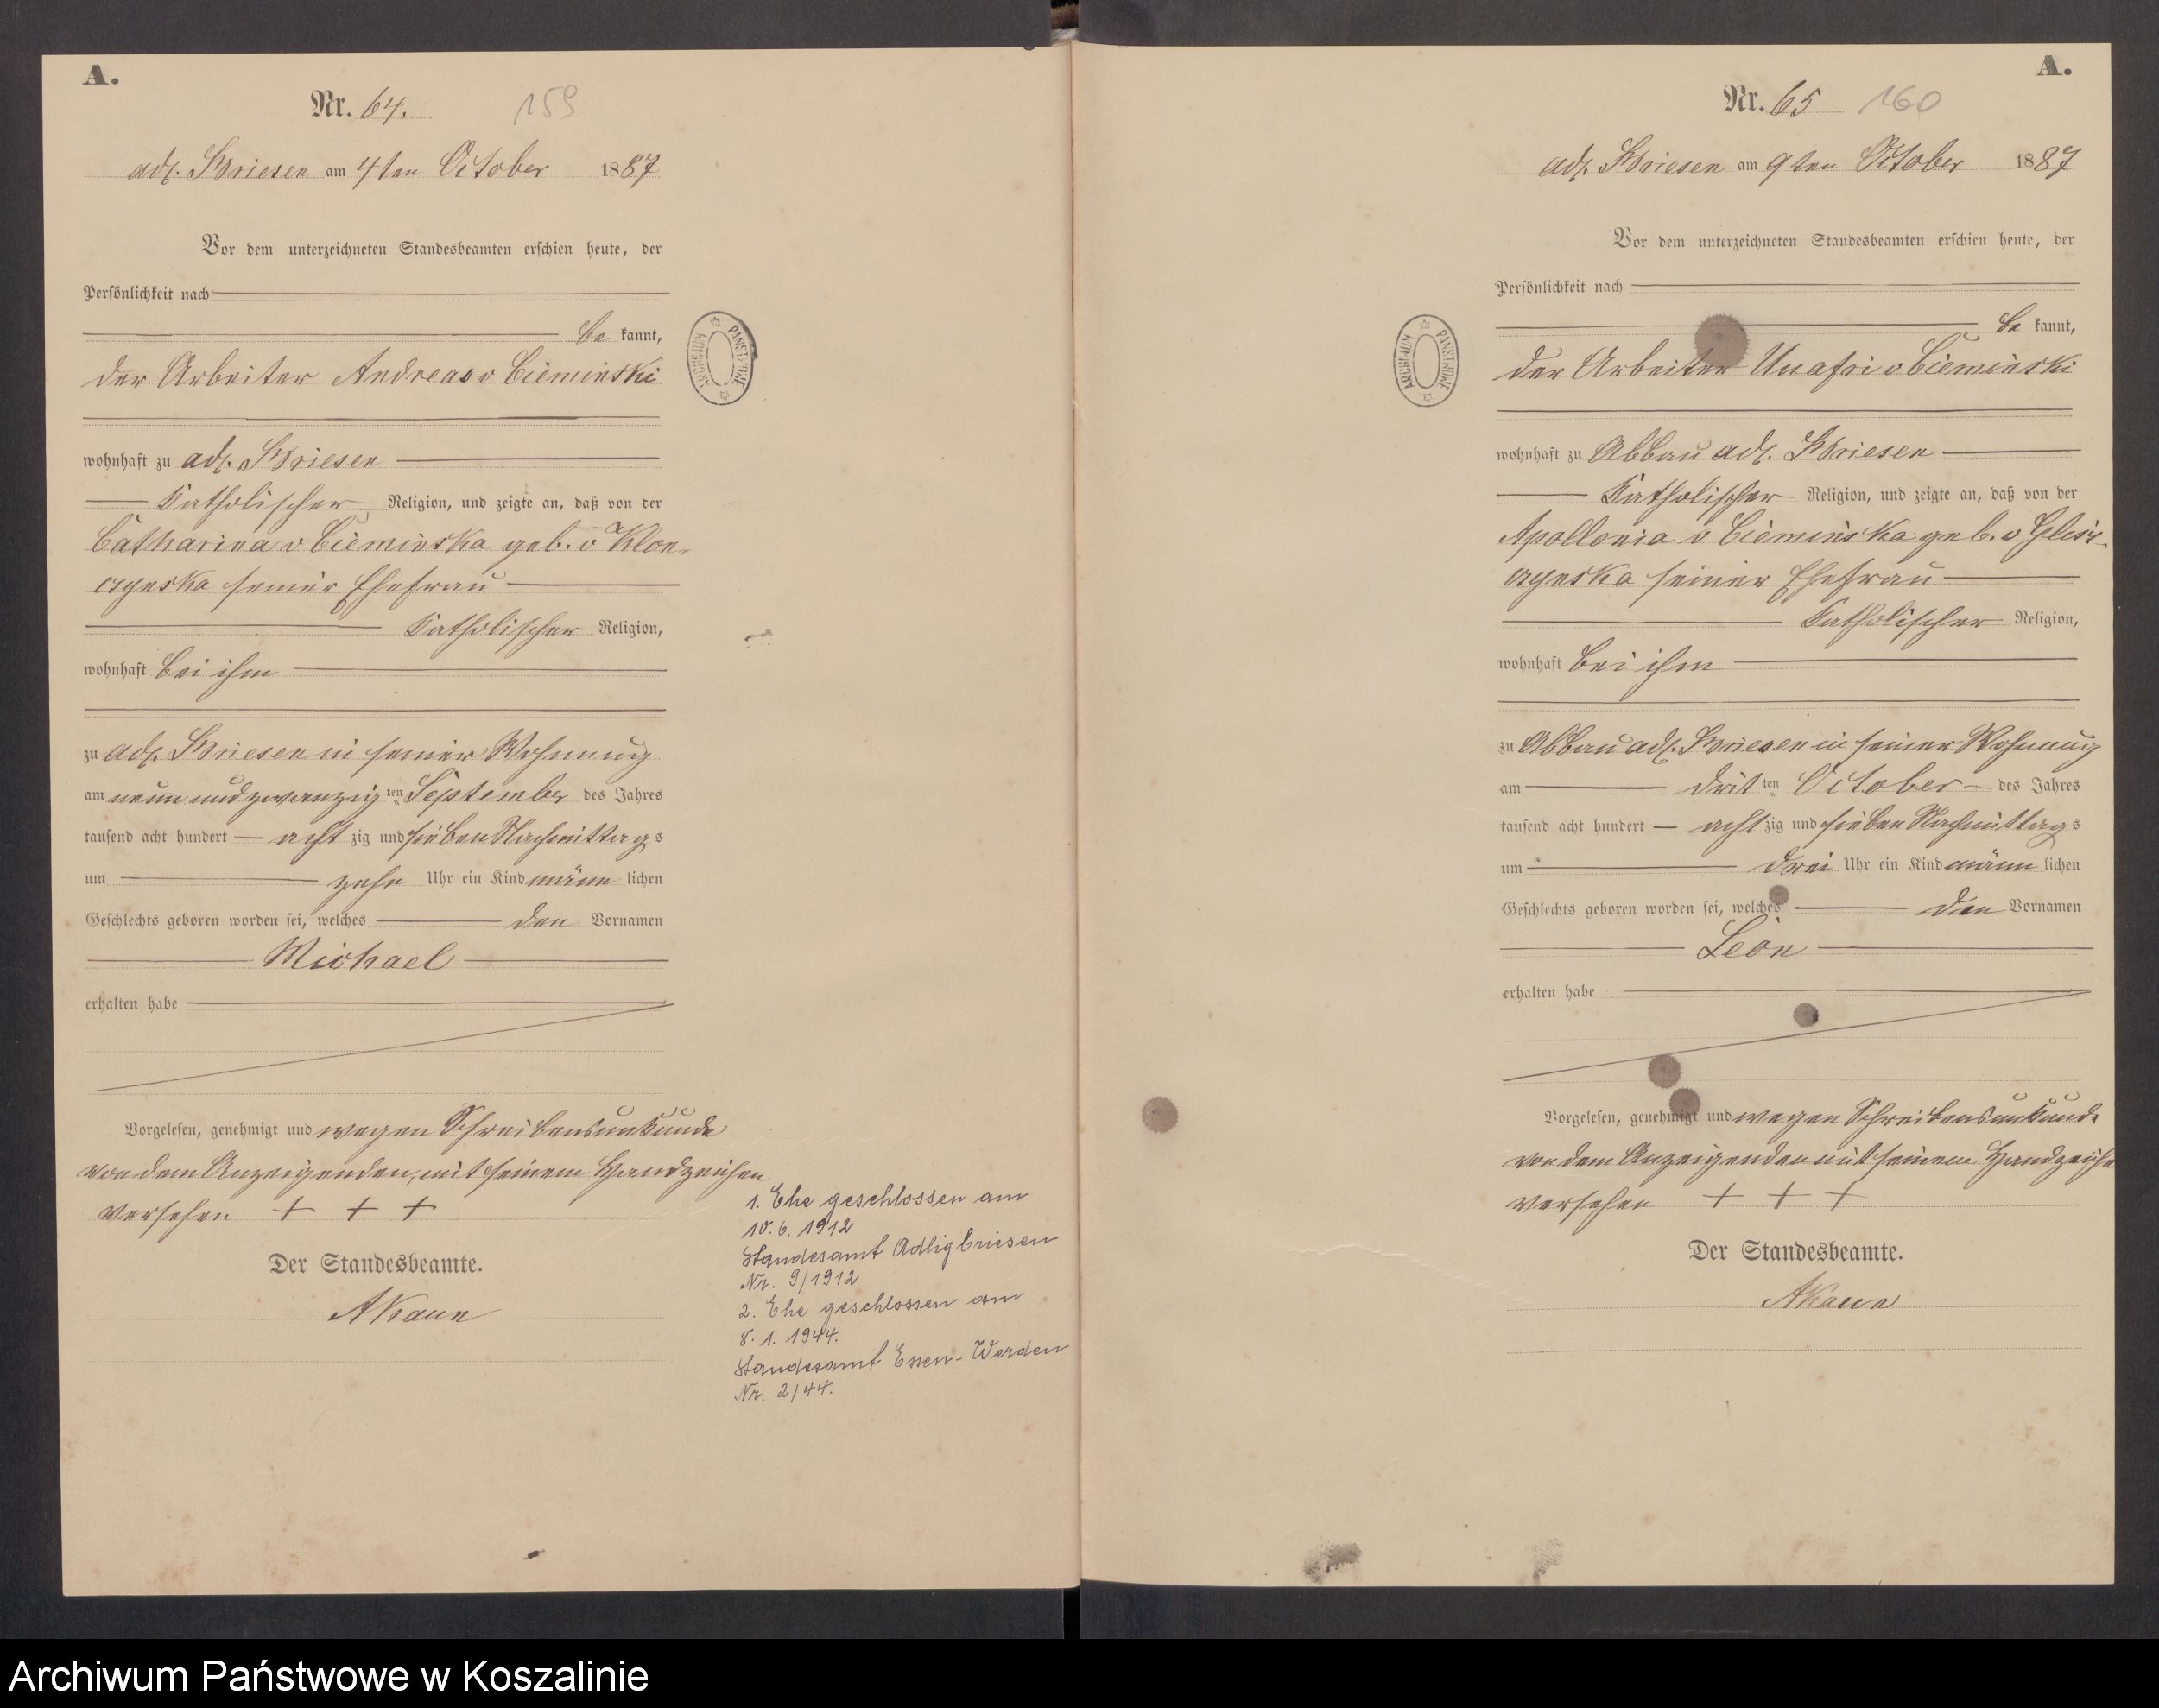 A.
Nr. 64.
159
adl. Briesen am 4ten October 1887
Vor dem unterzeichneten Standesbeamten erschien heute, der
Persönlichkeit nach
be kannt,
der Arbeiter Andreas v Cieminski
wohnhaft zu adl. Briesen
Katholischer Religion, und zeigte an, daß von der
Catharina v Cieminska geb. v Klon-
czynska seiner Ehefrau
Katholischer Religion,
wohnhaft bei ihm
zu adl. Briesen in seiner Wohnung
am neun und zwanzig ten September des Jahres
tausend acht hundert acht zig und sieben Nachmittags
um zehn Uhr ein Kind männ lichen
Geschlechts geboren worden sei, welches den Vornamen
Michael
erhalten habe
Vorgelesen, genehmigt und wegen Schreibensunkunde
von dem Anzeigenden, mit seinem Handzeichen
versehen + + +
Der Standesbeamte.
AKaun
1. Ehe geschlossen am
10.6.1912
Standesamt Adlig Briesen
Nr. 9/1912
2. Ehe geschlossen am
8.1.1944.
Standesamt Essen-Werden
Nr. 2/44.
ARCHIWUM PAŃSTWOWE
A.
Nr. 65
160
adl. Briesen am 9ten October 1887
Vor dem unterzeichneten Standesbeamten erschien heute, der
Persönlichkeit nach
be kannt,
der Arbeiter v Cieminski
wohnhaft zu Abbau adl. Briesen
Katholischer Religion, und zeigte an, daß von der
Apollonia v Cieminska geb. v
seiner Ehefrau
Katholischer Religion,
wohnhaft bei ihm
zu Abbau adl. Briesen in seiner Wohnung
am drit ten October des Jahres
tausend acht hundert acht zig und sieben Nachmittags
um drei Uhr ein Kind männ lichen
Geschlechts geboren worden sei, welches den Vornamen
Leon
erhalten habe
Vorgelesen, genehmigt und wegen Schreibensunkunde
von dem Anzeigenden mit seinem Handzeichen
versehen + + +
Der Standesbeamte.
AKaun
ARCHIWUM PAŃSTWOWE
Archiwum Państwowe w Koszalinie